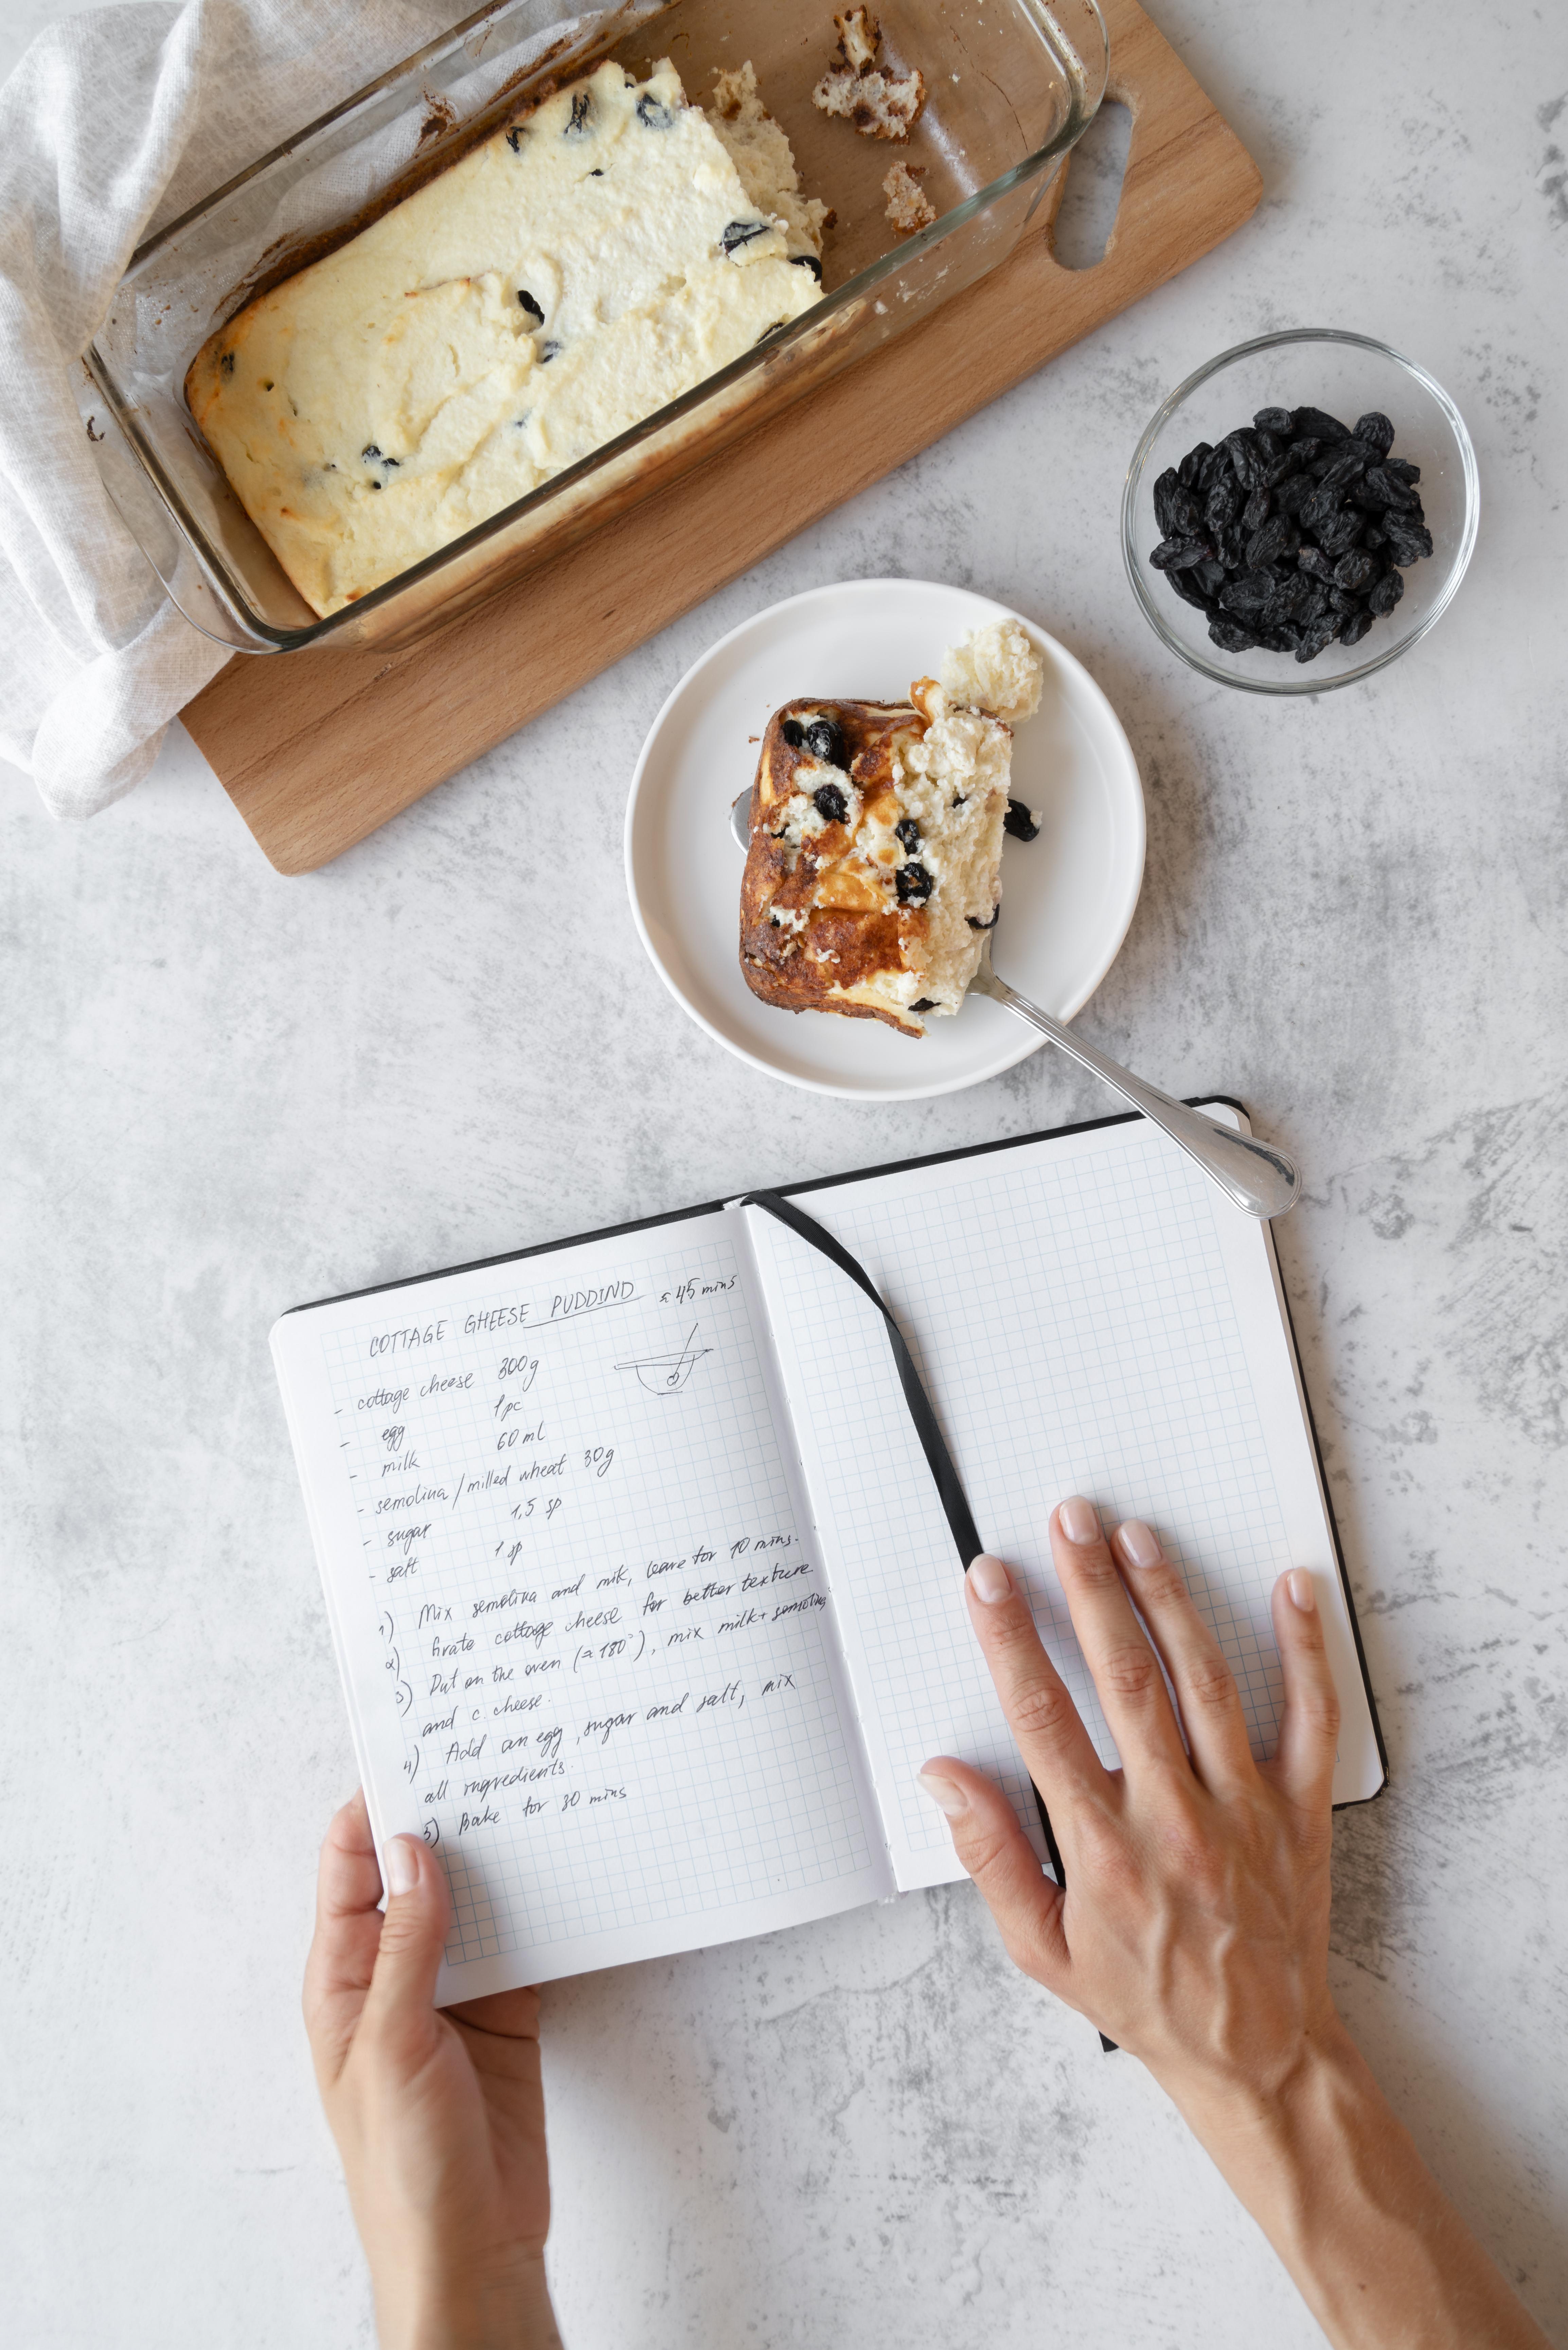 COTTAGE GHEESE PUDDIND ≈ 45 mins
- cottage cheese 300g
- egg 1 pc
- milk 60 ml
- semolina / milled wheat 30g
- sugar 1,5 sp
- salt 1 sp
1) Mix semolina and milk, leave for 10 mins.
2) Grate cottage cheese for better texture
3) Put on the oven (≈ 180°), mix milk + semolina
and c. cheese.
4) Add an egg, sugar and salt, mix
all ingredients.
5) Bake for 30 mins